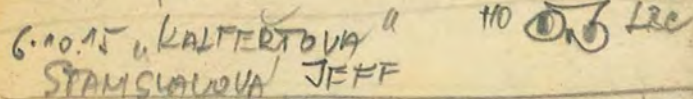 6.10.15 „KALFERŤOVÁ“ HO
STANISLAVOVÁ JEFF